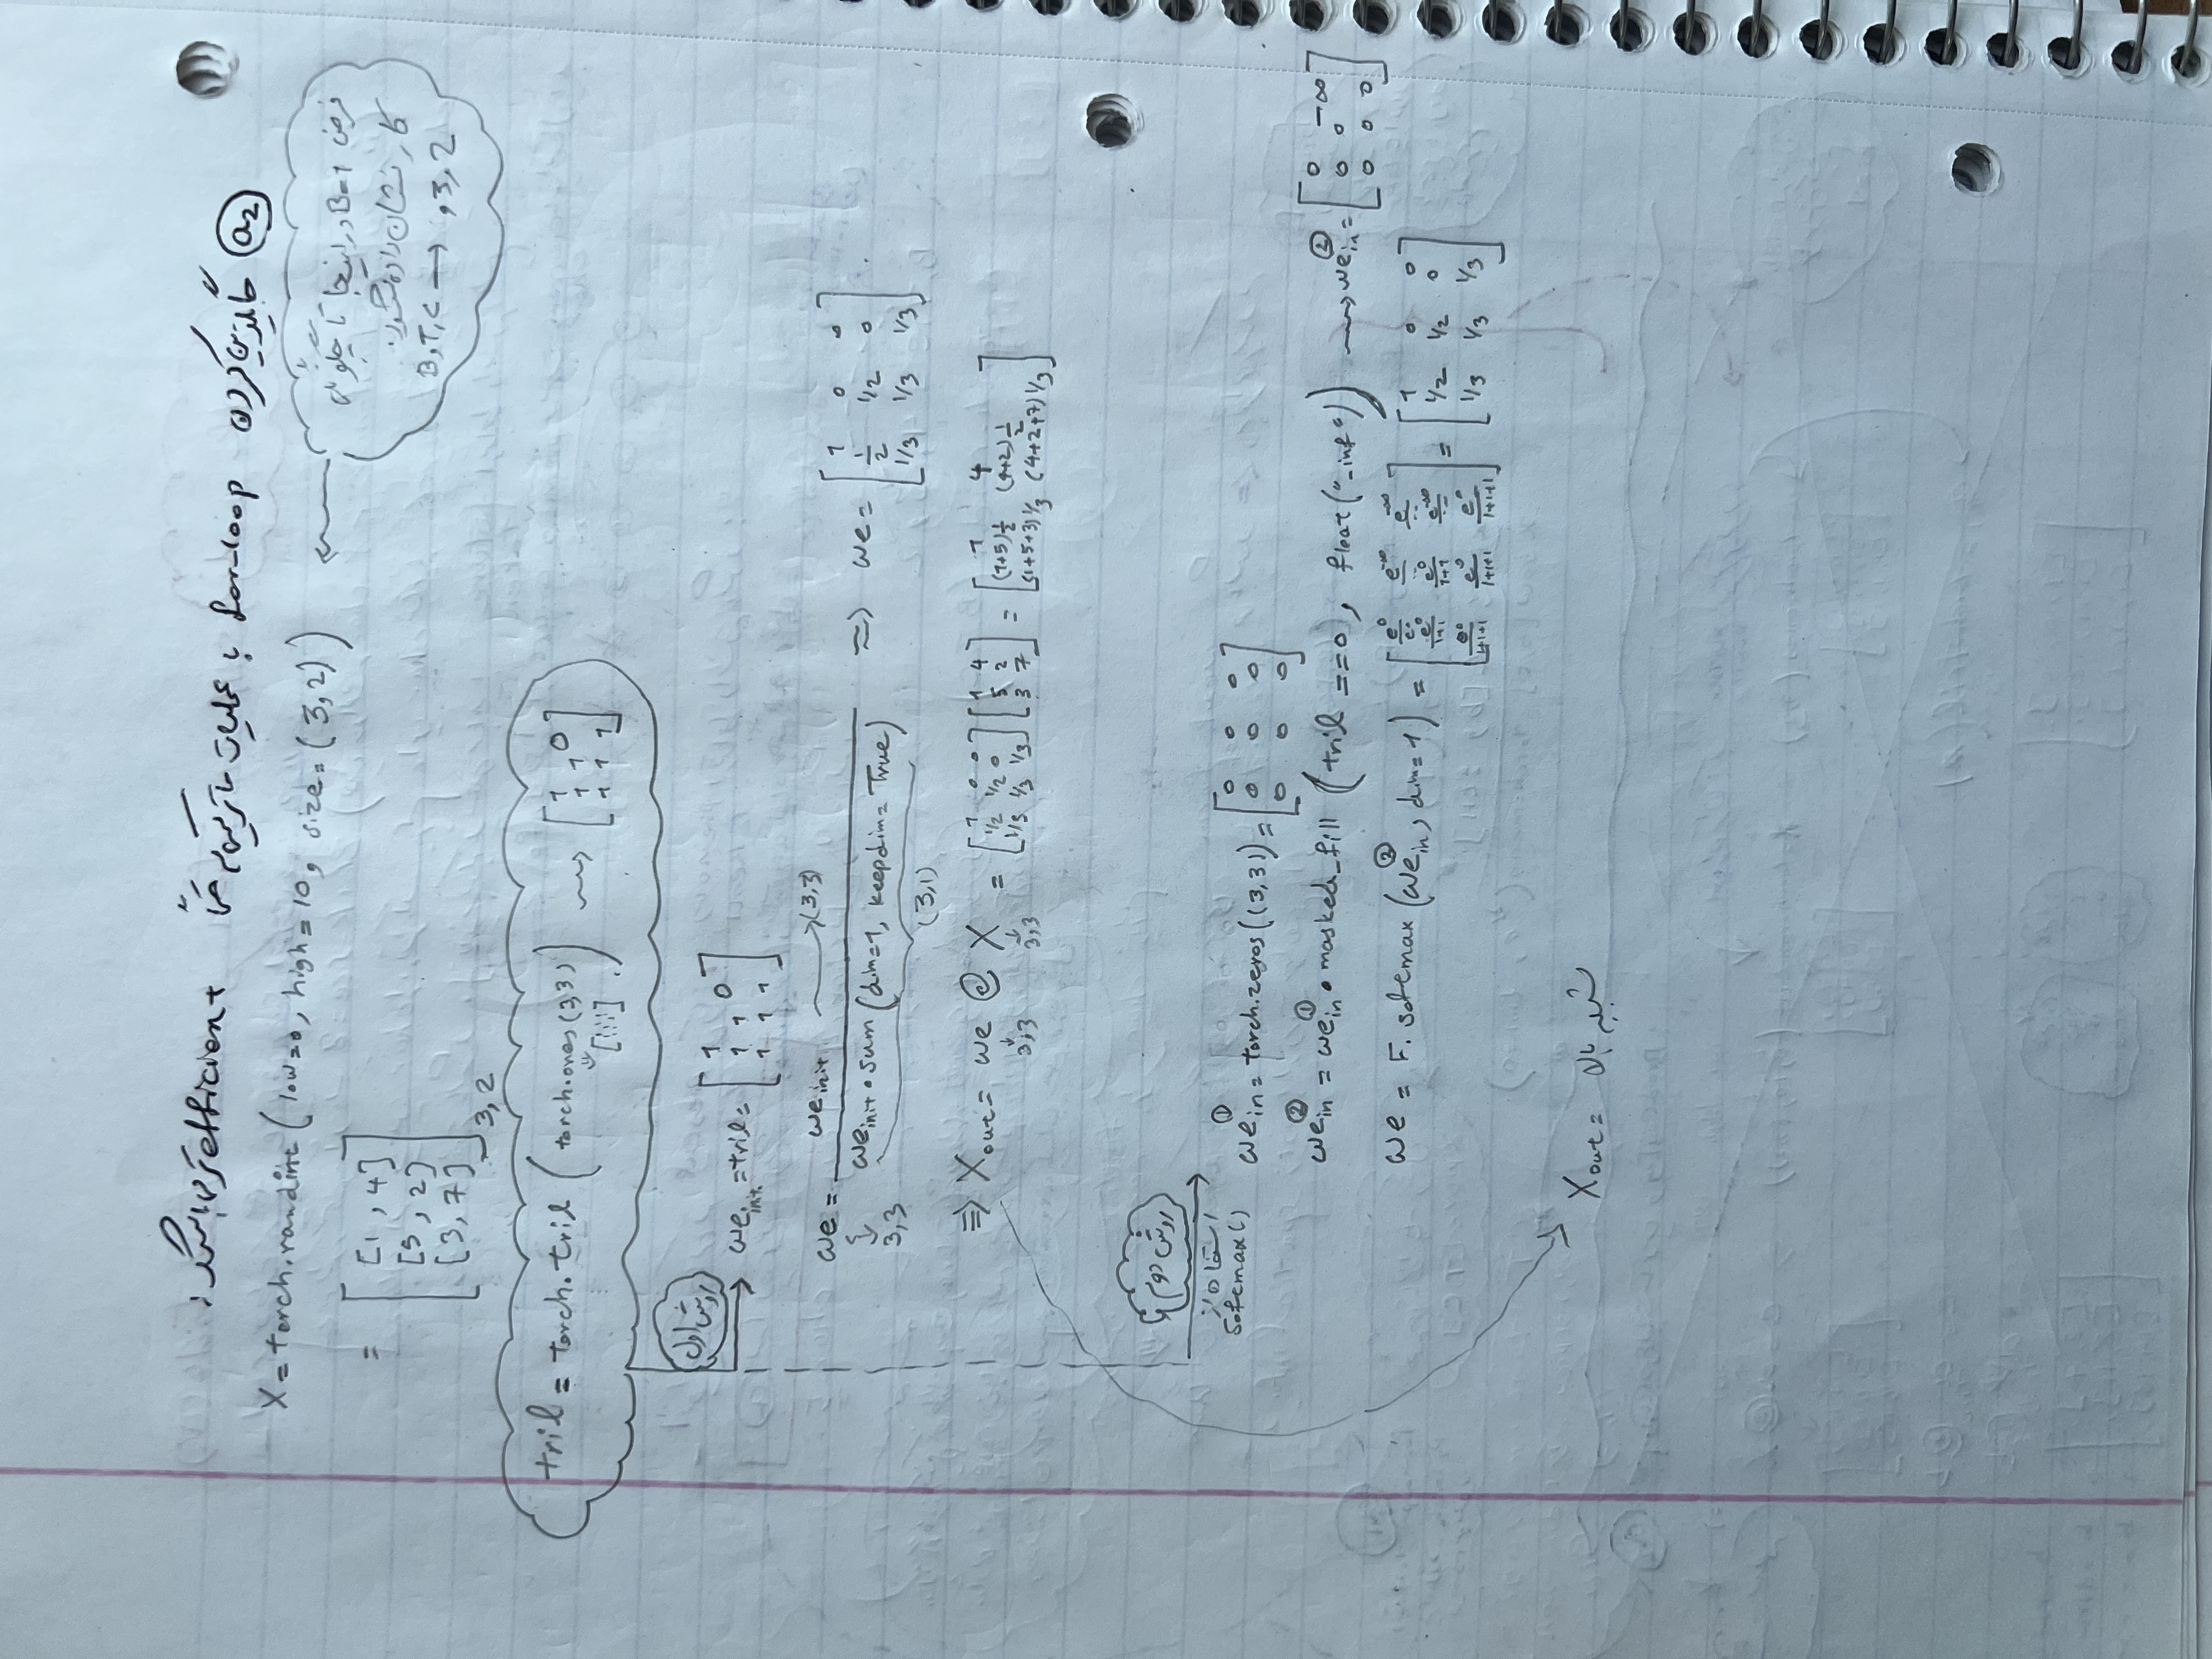 a2 جایگزین کردن for-loop با عملیات ماتریسی که efficient تر می باشد :
X = torch.randint ( low=0, high=10, size=(3,2) )
فرض B=1 در اینجا تا چگونگی
کار نشان داده شود.
B,T,C → , 3, 2
= [ [1, 4]
[5, 2]
[3, 7] ] 3,2
tril = torch.tril ( torch.ones (3,3) ) ⇝ [ 1 0
1 1
1 1 1 ]
روش اول
we init. = tril = [ 1 0
1 1
1 1 1 ]
we = we init → (3,3)
we init . sum (dim=1, keepdim=True)
3,3
(3,1)
⇒ we = [ 1 0 0
1/2 1/2 0
1/3 1/3 1/3 ]
⇒ Xout = we @ X = [ 1 0 0
1/2 1/2 0
1/3 1/3 1/3 ] [ 1 4
5 2
3 7 ] = [ 1 4
(1+5)1/2 (4+2)1/2
(1+5+3)1/3 (4+2+7)1/3 ]
3,3 3,3
روش دوم
استفاده از
Softmax()
we in ① = torch.zeros((3,3)) = [ 0 0 0
0 0 0
0 0 0 ]
we in ② = we in ① . masked_fill ( tril == 0, float("-inf") ) ⇝ we in ② = [ 0 -∞
0 0
0 0 0 ]
we = F. softmax (we in ②, dim=1) = [ e^0 e^-∞ e^-∞
e^0/1+1 e^0/1+1 e^-∞
e^0/1+1+1 e^0/1+1+1 e^0/1+1+1 ] = [ 1 0 0
1/2 1/2 0
1/3 1/3 1/3 ]
Xout = شبیه بالا